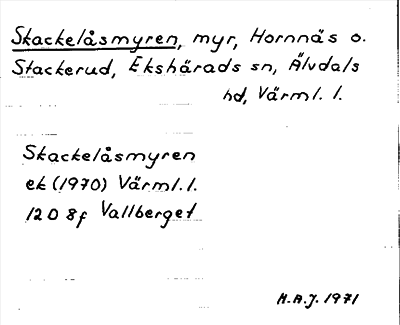 Skackelåsmyren, myr, Hornnäs o.
Stackerud, Ekshärads sn, Älvdals
hd, Värml. l.
Skackelåsmyren
ek (1970) Värml. l.
12D 8f Vallberget
H.A.J. 1971